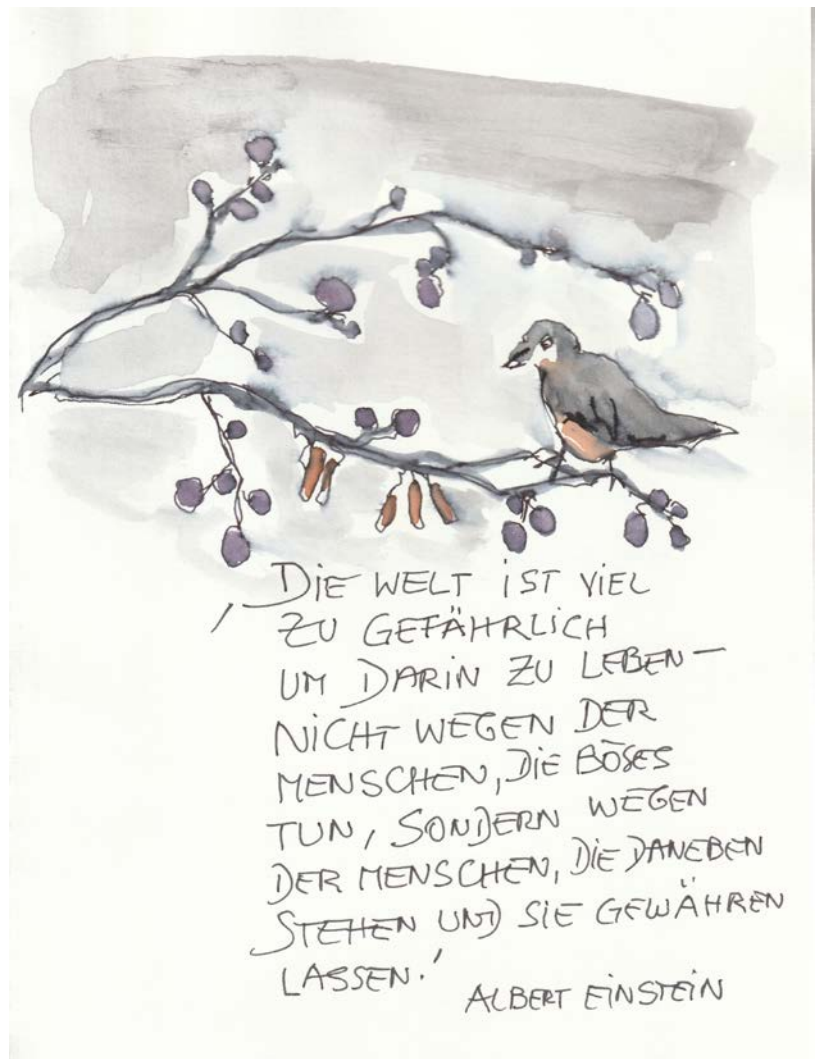 'DIE WELT IST VIEL
ZU GEFÄHRLICH
UM DARIN ZU LEBEN –
NICHT WEGEN DER
MENSCHEN, DIE BÖSES
TUN, SONDERN WEGEN
DER MENSCHEN, DIE DANEBEN
STEHEN UND SIE GEWÄHREN
LASSEN.'
ALBERT EINSTEIN